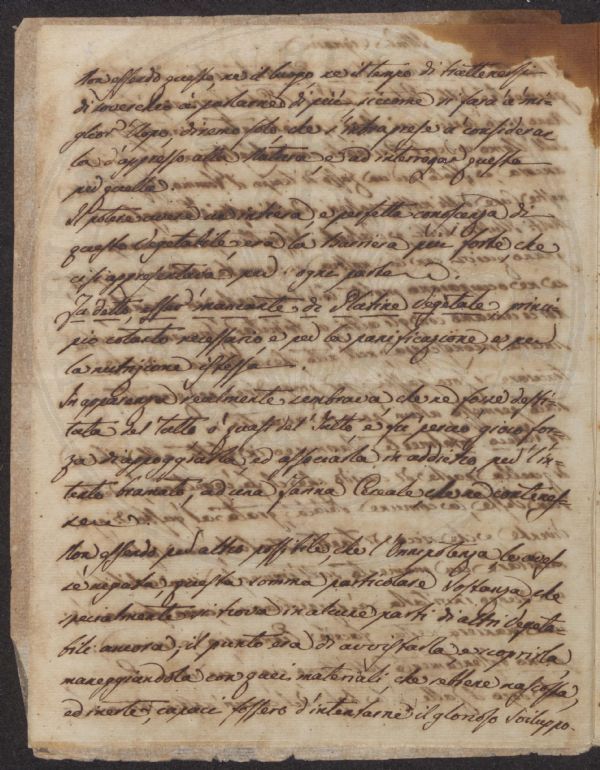 Non essendo questo, ne il luogo ne il tempo di trattenersi
di soverchio à parlarne di più siccome si farà à mi-
glior' Uopo: diremo solo che s'intraprese à considerar
la d'appresso alla Natura e ad interrogar questa
per quella.
Il potere avere un' intiera, e perfetta conoscenza di
questo Vegetabile era la barriera più forte che
ci si appresentava per ogni parte.
Fù detto, esser mancante di Glutine Vegetale princi-
pio cotanto necessario e per la panificazione e per
la nutrizione istessa.
In apparenza realmente sembrava che ne fosse desti-
tuta del tutto ò quasi del tutto è già perciò gioco for-
za di appoggiarla, ed associarla in addietro per l'in-
tento bramato, ad una farina Cereale che ne contenes-
se.
Non essendo per altro possibile, che l'Onnipotenza le aves-
se negata, questa somma particolare Sostanza, che
specialmente si trova in alcune parti di altri Vegeta-
bili ancora; il punto era di avvistarla e scoprirla
maneggiandola con quei materiali che sebbene nascosta,
ed inerte, capaci fossero d'intentarne il glorioso Sviluppo.